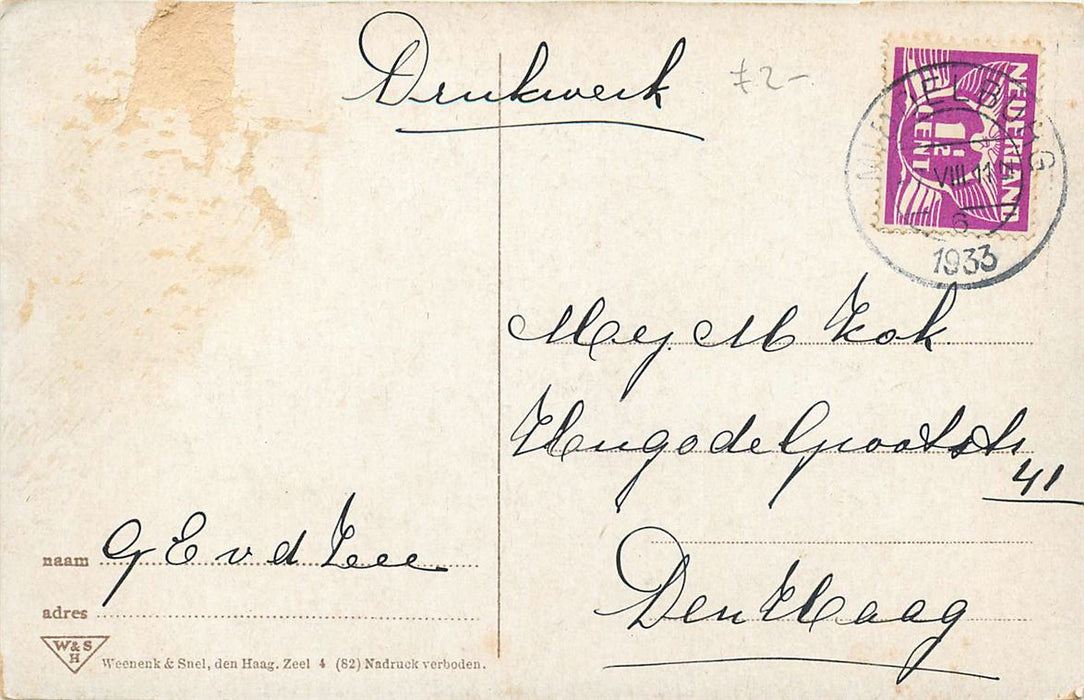 Drukwerk
f 2-
NEDERLAND
1½
CENT
MIDDELBURG
VIII.11
6
1933
Mej. M Kok
Hugo de Grootstr
41
Den Haag
naam G E v d Zee
adres
W&S
H
Weenenk & Snel, den Haag. Zeel 4 (82) Nadruck verboden.